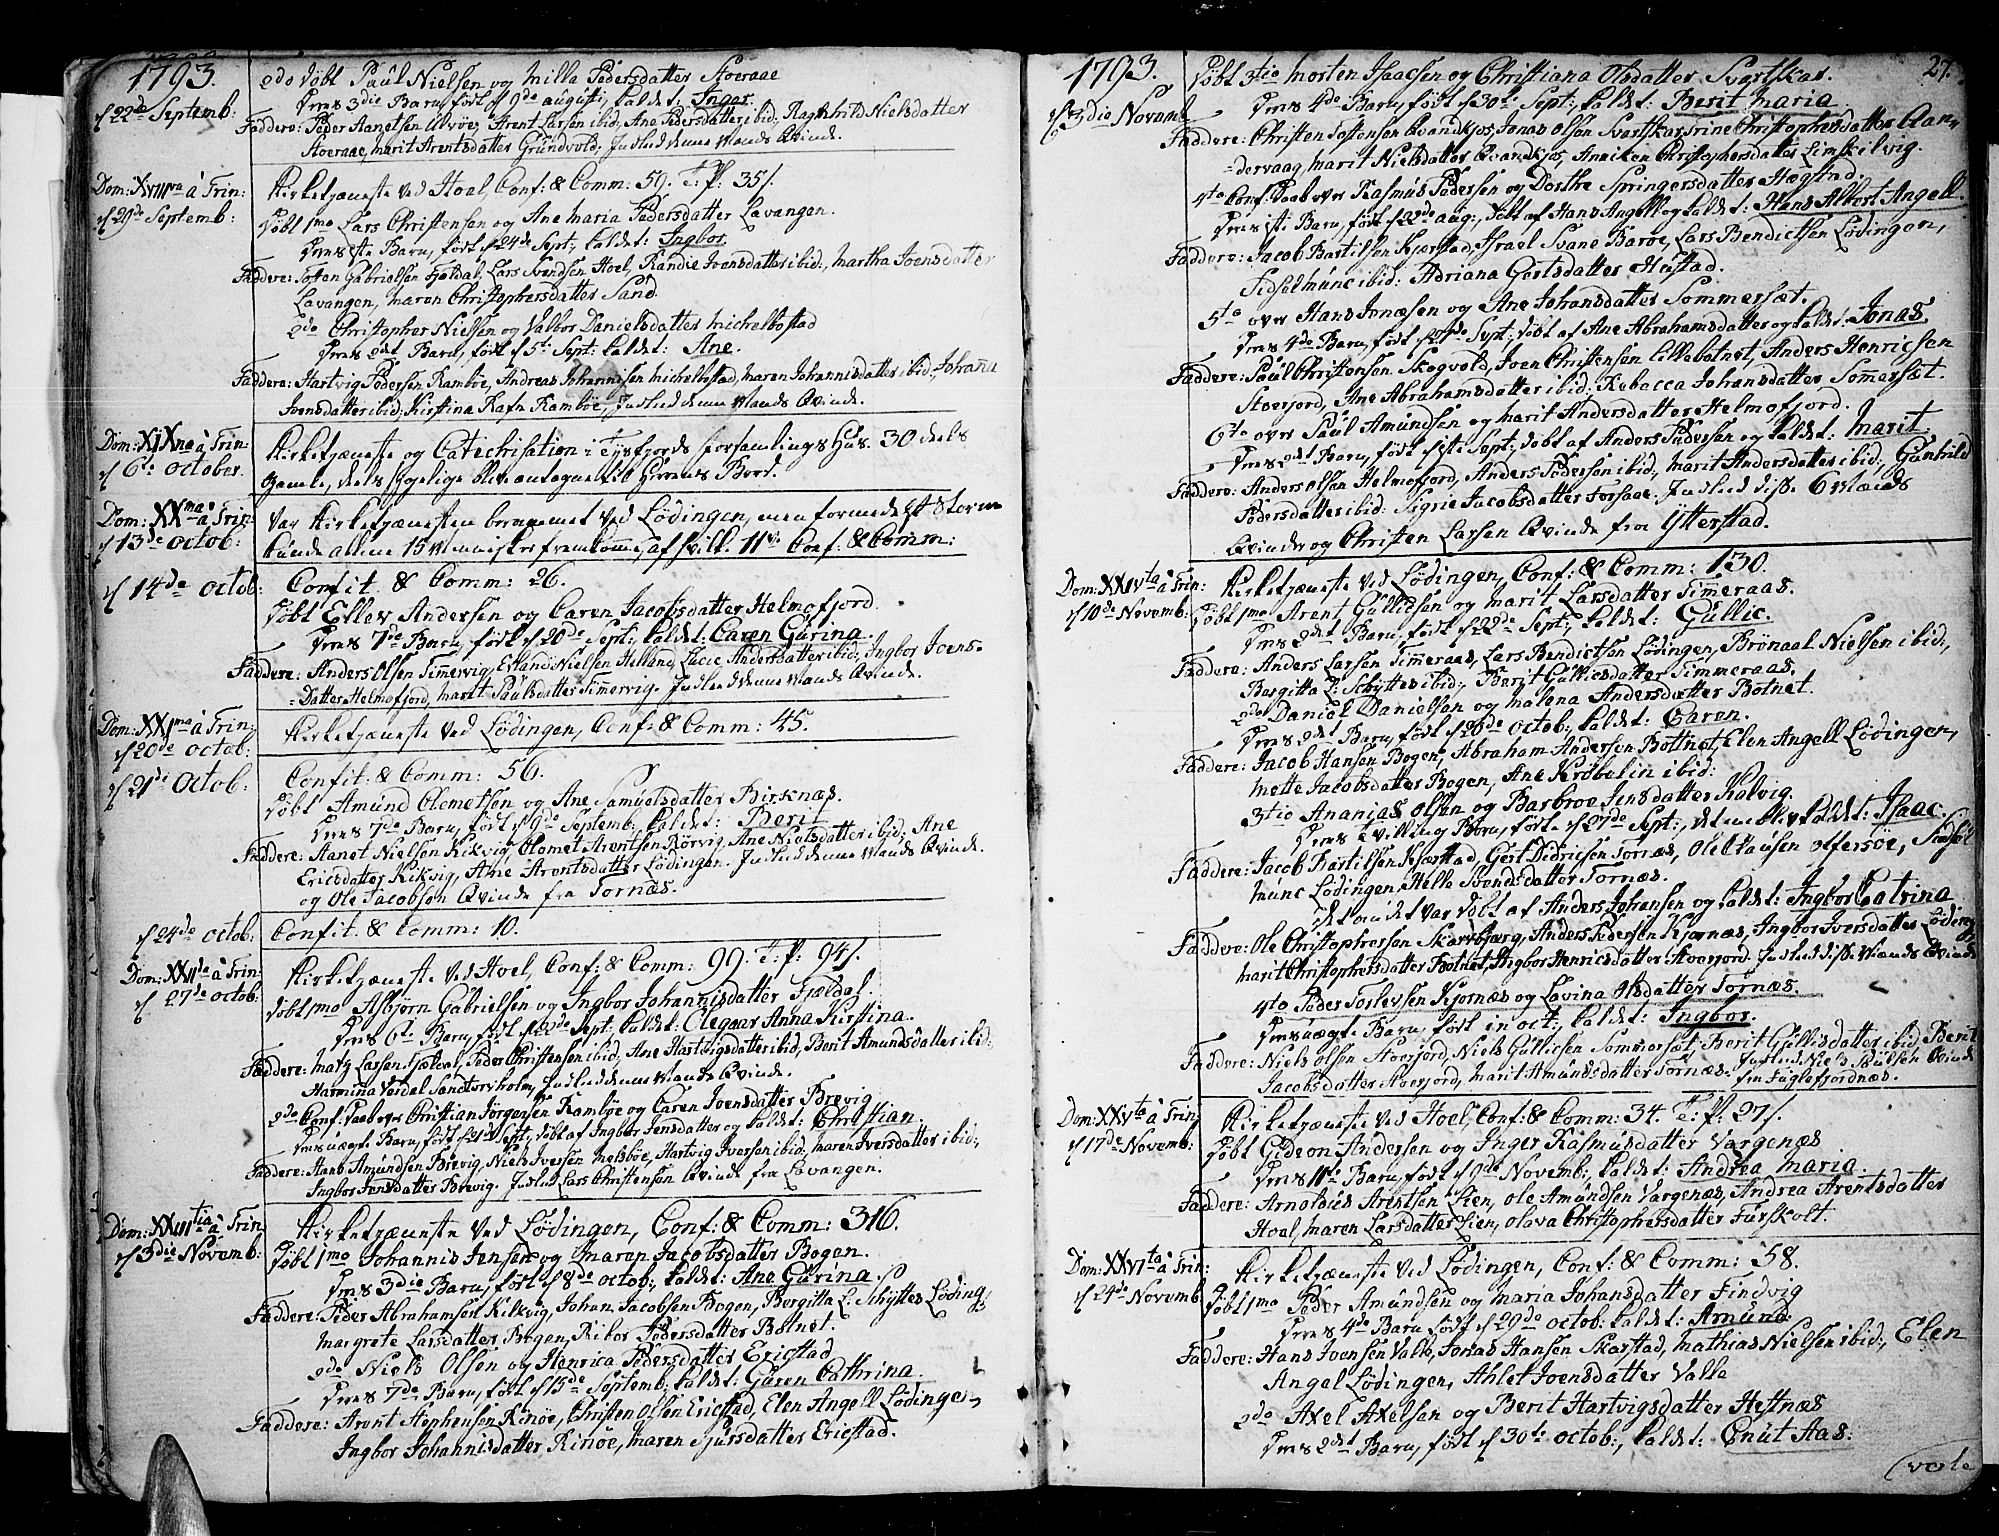 1793.
d 22de Septemb:
2do Døbt Paul Nielsen og Milla Pedersdatter Stoeraae
Deres 3die Barn, født d 9de augusti, kaldet: Inger.
Faddere: Peder Aanetsen Ulvøe, Arent Larsen ibid; Ane Pedersdatter ibid; Ragnhild Nielsdatter
Stoeraae, Marit Arentsdatter Grundvold; Indled denne Mands Qvinde.
Dom: XVIIIva à Trin:
d 29de Septemb:
Kirketjæneste ved Hoel, Conf: & Comm: 59. T: P: 35/.
Døbt 1mo Lars Christensen og Ane Maria Pedersdatter Lavangen.
Deres 1ste Barn, født d 24de Sept; kaldet: Ingbor.
Faddere: Tosten Gabrielsen Fjeldal, Lars Svendsen Hoel, Randie Joensdatter ibid:, Martha Joensdatter
Lavangen, Maren Christophersdatter Sand.
2do Christopher Nielsen og Valbor Danielsdatter Michelbostad
Deres 2det Barn, født d 5te Sept: kaldet: Ane.
Faddere: Hartvig Pedersen Ramboe, Andreas Johannisen Michelbostad, Maren Johannisdatter ibid:, Johanna
Joensdatter ibid; Kirstina Rafn Ramboe, Indled denne Mands Qvinde.
Dom: XIXna à Trin:
d 6te October.
Kirketjæneste og Catechisation i Tysfjords Forsamlings Hus. 30 deels
gamle, deels sygelige blev antagne til Herrens Bord.
Dom: XXma à Trin:
d 13de Octob:
Var Kirketjænesten berammet ved Lødingen, men formedelst Storm
kunde allene 15 Mennisker fremkomme, af hvilk: 11 Conf: & Comm:
d 14de Octob:
Confit: & Comm: 26.
Døbt Ellev Andersen og Caren Jacobsdatter Helmofjord.
Deres 7de Barn, født d 20de Sept; kaldet: Caren Gurina.
Faddere: Anders Olsen Timervig, Erland Nielsen Helland, Lucie Andersdatter ibid:, Ingbor Joens-
=Datter Helmofjord, Marit Paulsdatter Timervig. Indled denne Mands Qvinde.
Dom: XXIma à Trin:
d 20de Octob:
Kirketjæneste ved Lødingen, Conf: & Comm: 45.
d 21de Octob:
Confit: & Comm: 56.
Døbt Amund Clemetsen og Ane Samuelsdatter Birknæs.
Deres 7de Barn, født d 9de Septemb: kaldet: Berit.
Faddere: Aanet Nielsen Kikvig, Clemet Arentsen Rørvig, Ane Nielsdatter ibid; Ane
Ericsdatter Kikvig, Ane Arentsdatter Lødingen. Indled denne Mands Qvinde.
og Ole Jacobsen Qvinde fra Tornæs.
d 24de Octob:
Confit: & Comm: 10.
Dom: XXIIda à Trin:
d 27de Octob:
Kirketjæneste ved Hoel, Conf: & Comm: 99. T: P: 94/.
Døbt 1mo Asbjørn Gabrielsen og Ingbor Johannisdatter Fjeldal.
Deres 6te Barn, født d 22de Sept; kaldet: Olegaar Anna Kirstina.
Faddere: Matz Larsen Fjeldal, Peder Christensen ibid; Ane Hartvigsdatter ibid, Berit Amundsdatter ibid;
Harmina Veidel Sandtorvholm, Indled denne Mands Qvinde.
2do Conf: Daab over Christian Jørgensen Ramboe og Caren Joensdatter Brevig
Deres uægte Barn, født d 21de Sept; døbt af Ingbor Jensdatter og kaldet: Christian.
Faddere: Hans Amundsen Brevig, Niels Iversen Melsbøe, Hartvig Iversen ibid; Maren Iversdatter ibid:,
Ingbor Jensdatter Brevig. Indled Lars Christensen Qvinde fra Lavangen.
Dom: XXIIItia à Trin:
d 3die Novemb:
Kirketjæneste ved Lødingen, Conf: & Comm: 316.
Døbt 1mo Johannis Jensen og Maren Jacobsdatter Bogen.
Deres 3die Barn, født d 8de Octob:, kaldet: Ane Gurina.
Faddere: Peder Abrahamsen Kilvig, Johan Jacobsen Bogen, Bergitta L: Schyttes Løding:
Margrete Larsdatter Bogen, Ribor Pedersdatter Botnet.
2do Niels Olsen og Henrica Pedersdatter Ericstad
Deres 7de Barn, født d 15de Septemb: kaldet: Garen Cathrina.
Faddere: Arent Stephensen Rinøe, Christen Olsen Ericstad, Elen Angell Lødingen,
Ingbor Johannisdatter Rinøe, Maren Sjursdatter Ericstad.
1793.
27.
d 3die Novemb
Døbt 3tio Morten Isacsen og Christiana Olsdatter Svartskar.
Deres 4de Barn, født d 30te Sept; kaldet: Berit Maria.
Faddere: Christen Tostensen Qvandkjos, Jonas Olsen Svartskar, Trine Christophersdatter Aan-
=dervaag, Marit Nielsdatter Qvandkjos, Anniken Christophersdatter Limskilvig.
4to Conf: Daab over Rasmus Pedersen og Dorthe Springersdatter Hægstad.
Deres 1ste Barn, født d 23de aug:, døbt af Hans Angell og kaldet: Hans Albert Angell.
Faddere: Jacob Bartilsen Kjærstad, Israel Svane Barøe, Lars Bendictsen Lødingen,
Sidsel Munc ibid: Adriana Gertsdatter Hustad.
5to over Hans Jonæsen og Ane Johansdatter Sommersæt.
Deres 4de Barn, født d 24de Sept; døbt af Ane Abrahamsdatter og kaldet: Jonas.
Faddere: Paul Christensen Skogvold, Joen Christensen Lillebotnet, Anders Henricsen
Stoerfjord, Ane Abrahamsdatter ibid: Rebacca Johansdatter Somersæt.
6to over Paul Amundsen og Marit Andersdatter Helmofjord.
Deres 2det Barn, født d 1ste Sept; døbt af Anders Pedersen og kaldet: Marit.
Faddere: Anders Olsen Helmofjord, Anders Pedersen ibid:, Marit Andersdatter ibid:, Gunhild
Pedersdatter ibid: Sigrie Jacobsdatter Forsaae. Indled disse 6 Mænds
Qvinder og Christen Larsen Qvinde fra Ytterstad.
Dom: XXIVta à Trin:
d 10de Novemb:
Kirketjæneste ved Lødingen, Conf: & Comm: 130.
Døbt 1mo Arent Gullicsen og Marit Larsdatter Timeraas.
Deres 2det Barn, født d 22de Sept; kaldet: Gullic.
Faddere: Anders Larsen Timeraas, Lars Bendictsen Lødingen, Brønaal Nielsen ibid:,
Bergitta L: Schyttes ibid:, Berit Gullicsdatter Timmeraas.
2do Daniel Danielsen og Malena Andersdatter Botnet.
Deres 2det Barn, født d 26de Octob: kaldet: Caren.
Faddere: Jacob Hansen Bogen, Abraham Andersen Bottnet, Elen Angell Lødingen,
Mette Jacobsdatter Bogen, Ane Krøbelin ibid:
3tio Ananias Olsen og Barbroe Jensdatter Kalvig.
Deres Tvilling Børn, født d 27de Sept:, det ene blev kaldet: Isaac.
Faddere: Jacob Bartilsen Kjærstad, Gert Didricsen Tornæs, Ole Clausen Offersøe, Sidsel
Munc Lødingen, Helle Svendsdatter Tornæs.
Det andet var døbt af Anders Johansen og kaldet: Ingbor Catrina
Faddere: Ole Christophersen Skarvbjerg, Anders Pedersen Kjornæs, Ingbor Iversdatter Løding
Marit Christophersdatter Botnet, Ingbor Henricsdatter Stoerfjord. Indled disse Mænds Qvinde
4to Peder Torlevsen Kjornæs og Lovina Olsdatter Tornæs.
Deres uægte Barn, født in Oct:, kaldet: Ingbor.
Faddere: Niels Olsen Stoerfjord, Niels Gullicsen Sommersæt, Berit Gullicsdatter ibid, Berit
Jacobsdatter Stoerfjord, Marit Amundsdatter Tornæs. Indled Niels Paulsen Qvinde
fra Fuglefjordnæs.
Dom: XXVta à Trin:
d 17de Novemb:
Kirketjæneste ved Hoel, Conf: & Comm: 34. T: P: 27/.
Døbt Gideon Andersen og Inger Rasmusdatter Vargenæs
Deres 11te Barn, født d 9de Novemb: kaldet: Andrea Maria.
Faddere: Arnoldus Arentsen Lien, Ole Amundsen Vargenæs, Andrea Arentsdatter
Hoel, Maren Larsdatter Lien, Olava Christophersdatter Furskolt.
Dom: XXVIta à Trin:
d 24de Novemb
Kirketjæneste ved Lødingen, Conf: & Comm: 58.
Døbt 1mo Peder Amundsen og Maria Johansdatter Findvig
Deres 4de Barn født d 29de Octob: kaldet: Amund.
Faddere: Hans Joensen Valle, Jonas Hansen Skarstad, Mathias Nielsen ibid:, Elen
Angel Lødingen, Ahlet Joensdatter Valle
2do Axel Axelsen og Berit Hartvigsdatter Hestnæs
Deres 2det Barn, født d 30te Octob:, kaldet: Cnut Aas.